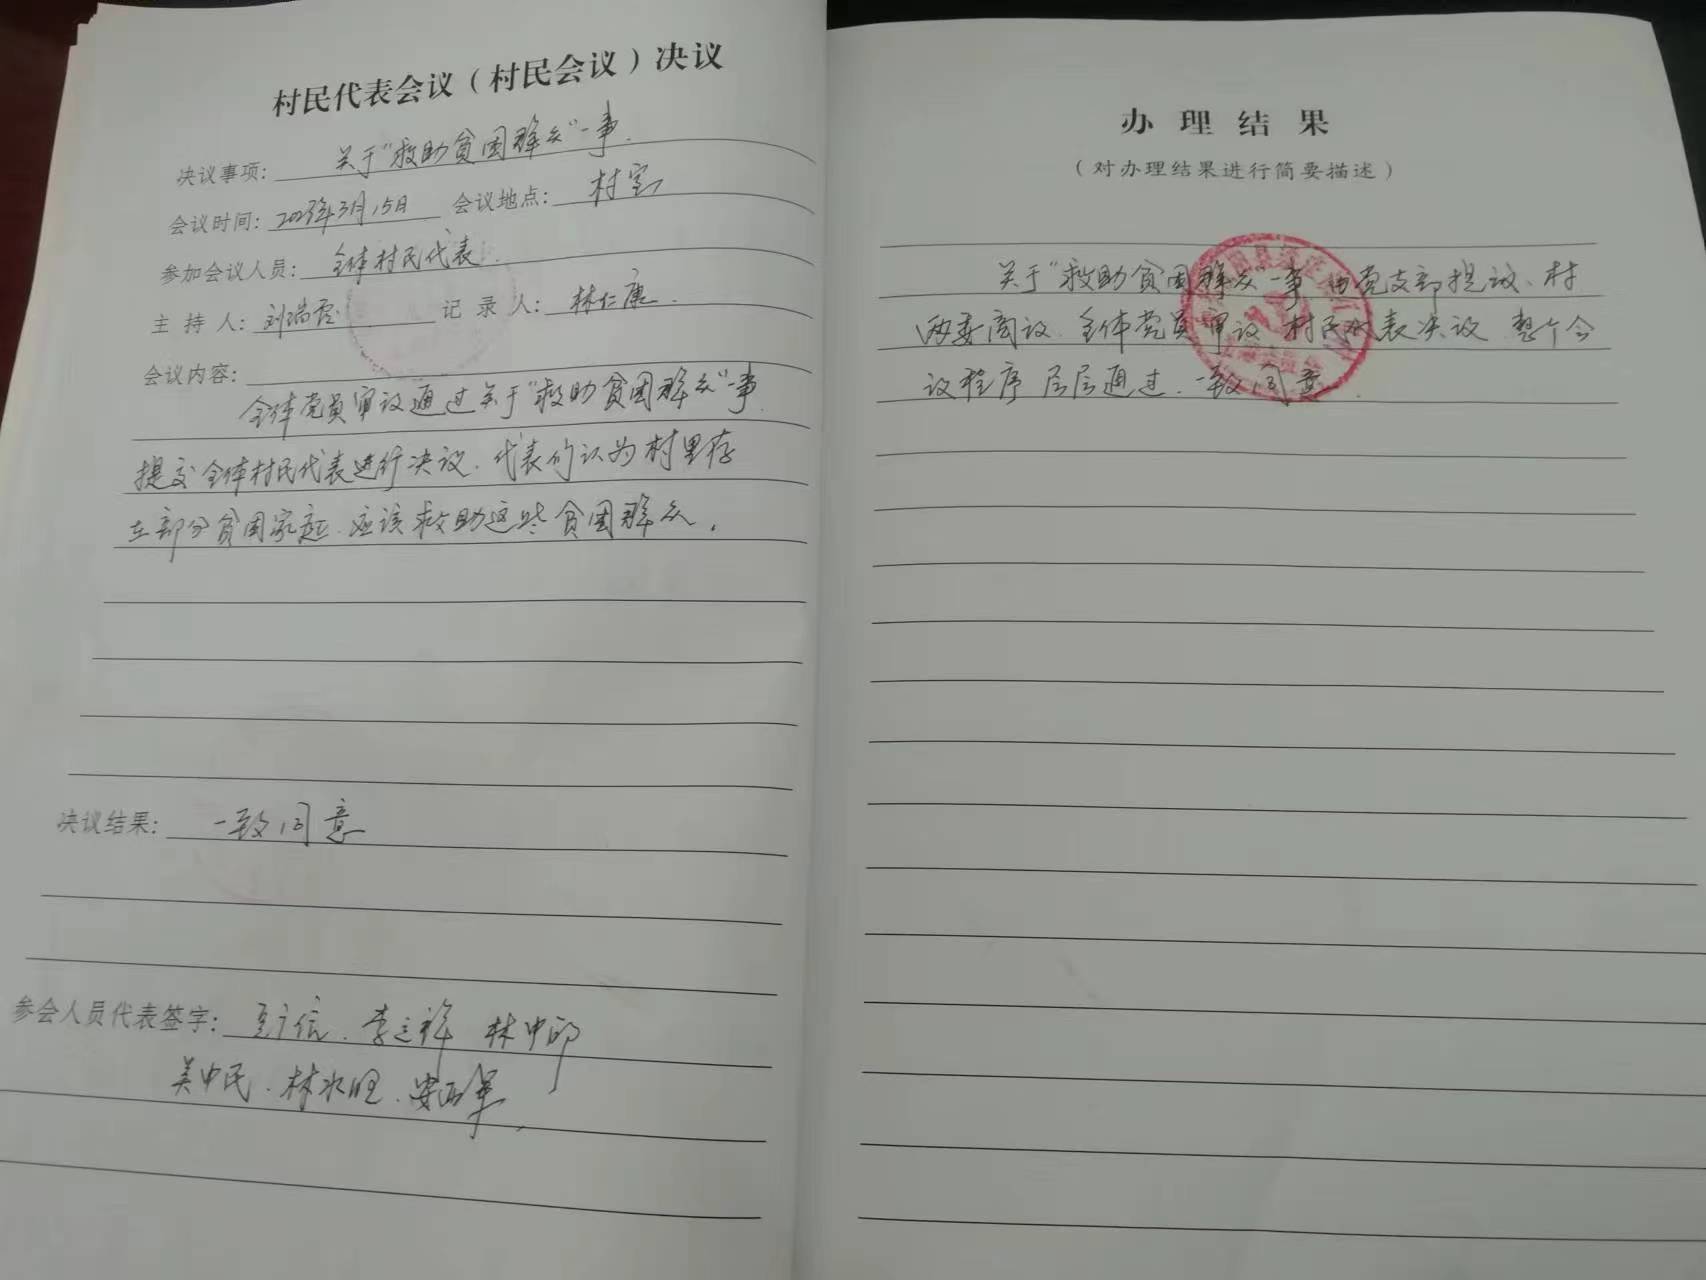 村民代表会议（村民会议）决议
决议事项：关于“救助贫困群众”一事.
会议时间：2023年3月15日 会议地点：村室
参加会议人员：全体村民代表.
主持人：刘瑞霞 记录人：林仁康.
会议内容：
全体党员审议通过关于“救助贫困群众”一事.
提交全体村民代表进行决议.代表们认为村里存
在部分贫困家庭.应该救助这些贫困群众.
决议结果：一致同意
参会人员代表签字：李立祥 林中
吴中民.林水旺.
办理结果
（对办理结果进行简要描述）
关于“救助贫困群众”一事由党支部提议、村
两委商议.全体党员审议 村民代表决议 整个会
议程序层层通过.一致同意.